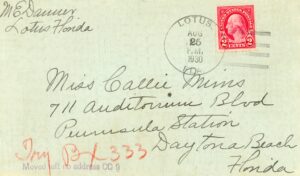 M E Danner
Lotus Florida
LOTUS
AUG
25
P.M.
1930
FLA.
2 CENTS 2
Miss Callie Mims
711 Auditorium Blvd
Peninsular Station
Daytona Beach
Florida
Try Bx 333
Moved left no address